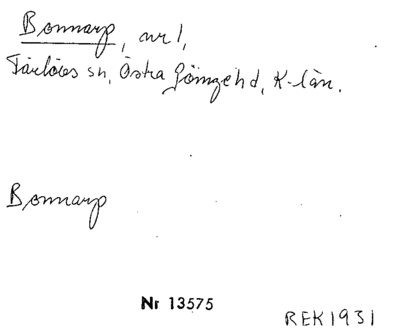 Bonnarp, nr 1,
Färlövs sn, Östra Göinge hd, K-län.
Bonnarp
Nr 13575
REK 1931